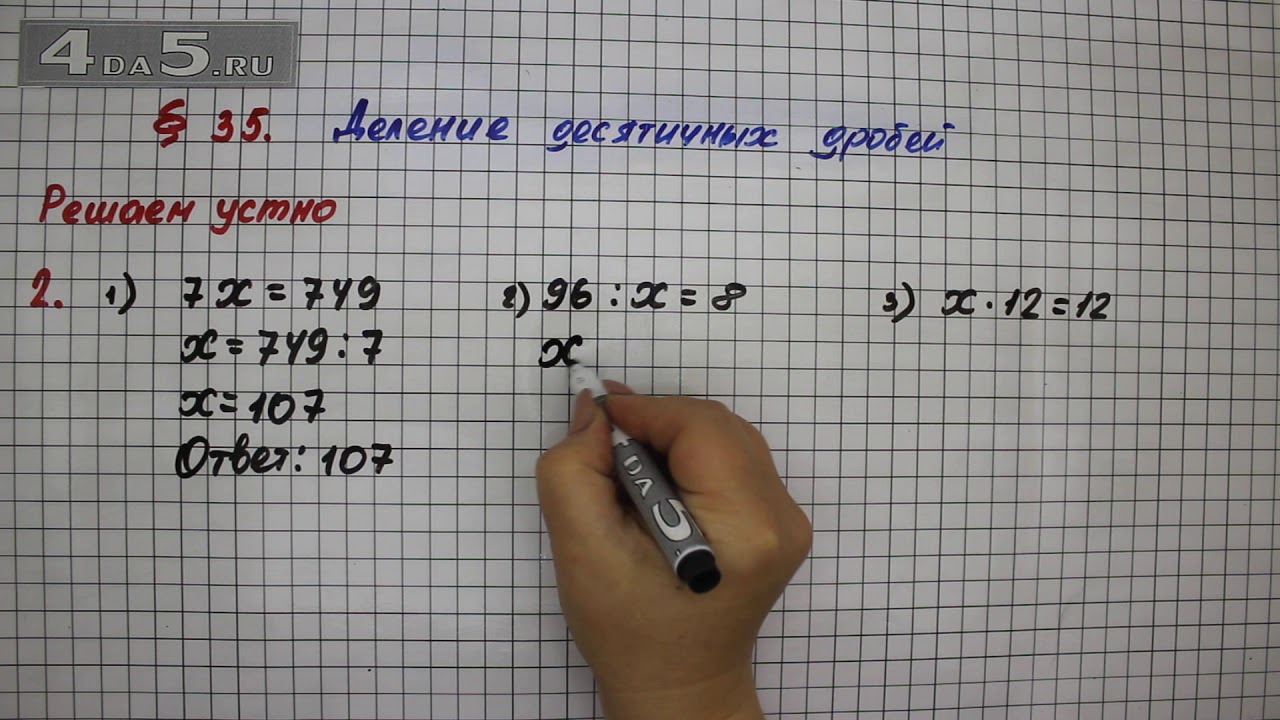 4DA5.RU
§ 35. Деление десятичных дробей
Решаем устно
2. 1) 7x = 749
x = 749 : 7
x = 107
Ответ: 107
2) 96 : x = 8
x
3) x · 12 = 12
DA 5